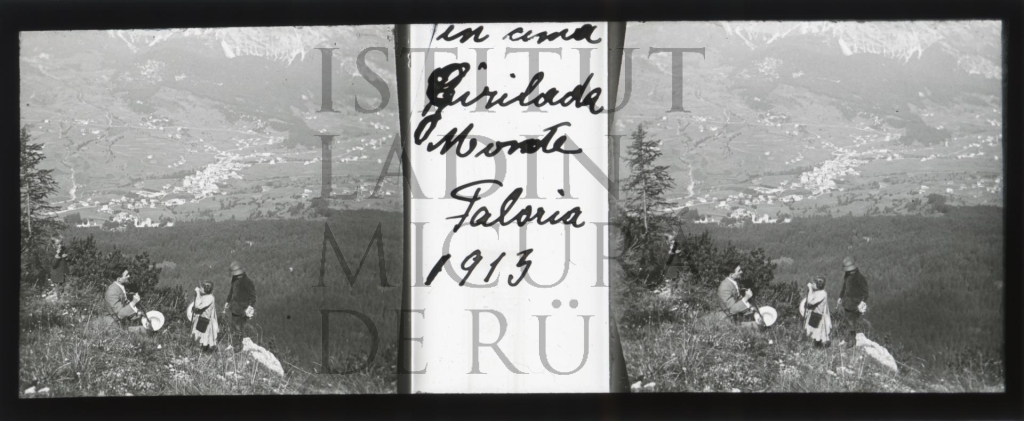 in cima
Girilada
Monte
Faloria
1913
ISTITUT
LADIN
MICURÀ
DE RÜ